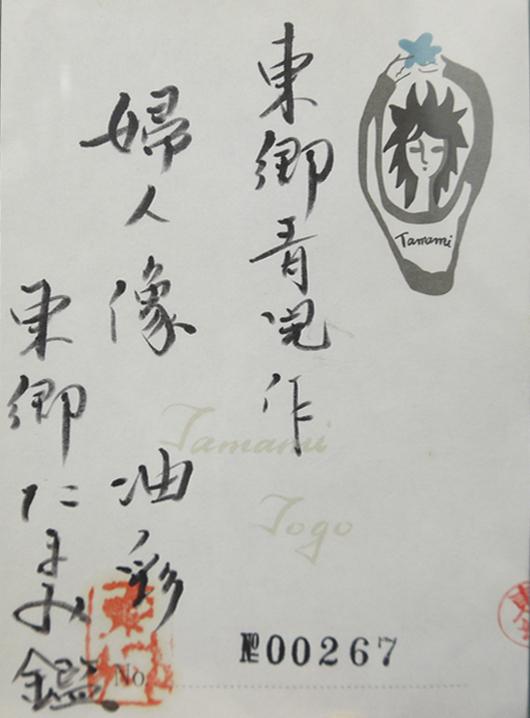 東郷青児作
婦人像 油彩
東郷たまみ鑑
Tamami
Tamami
Togo
№00267
No.